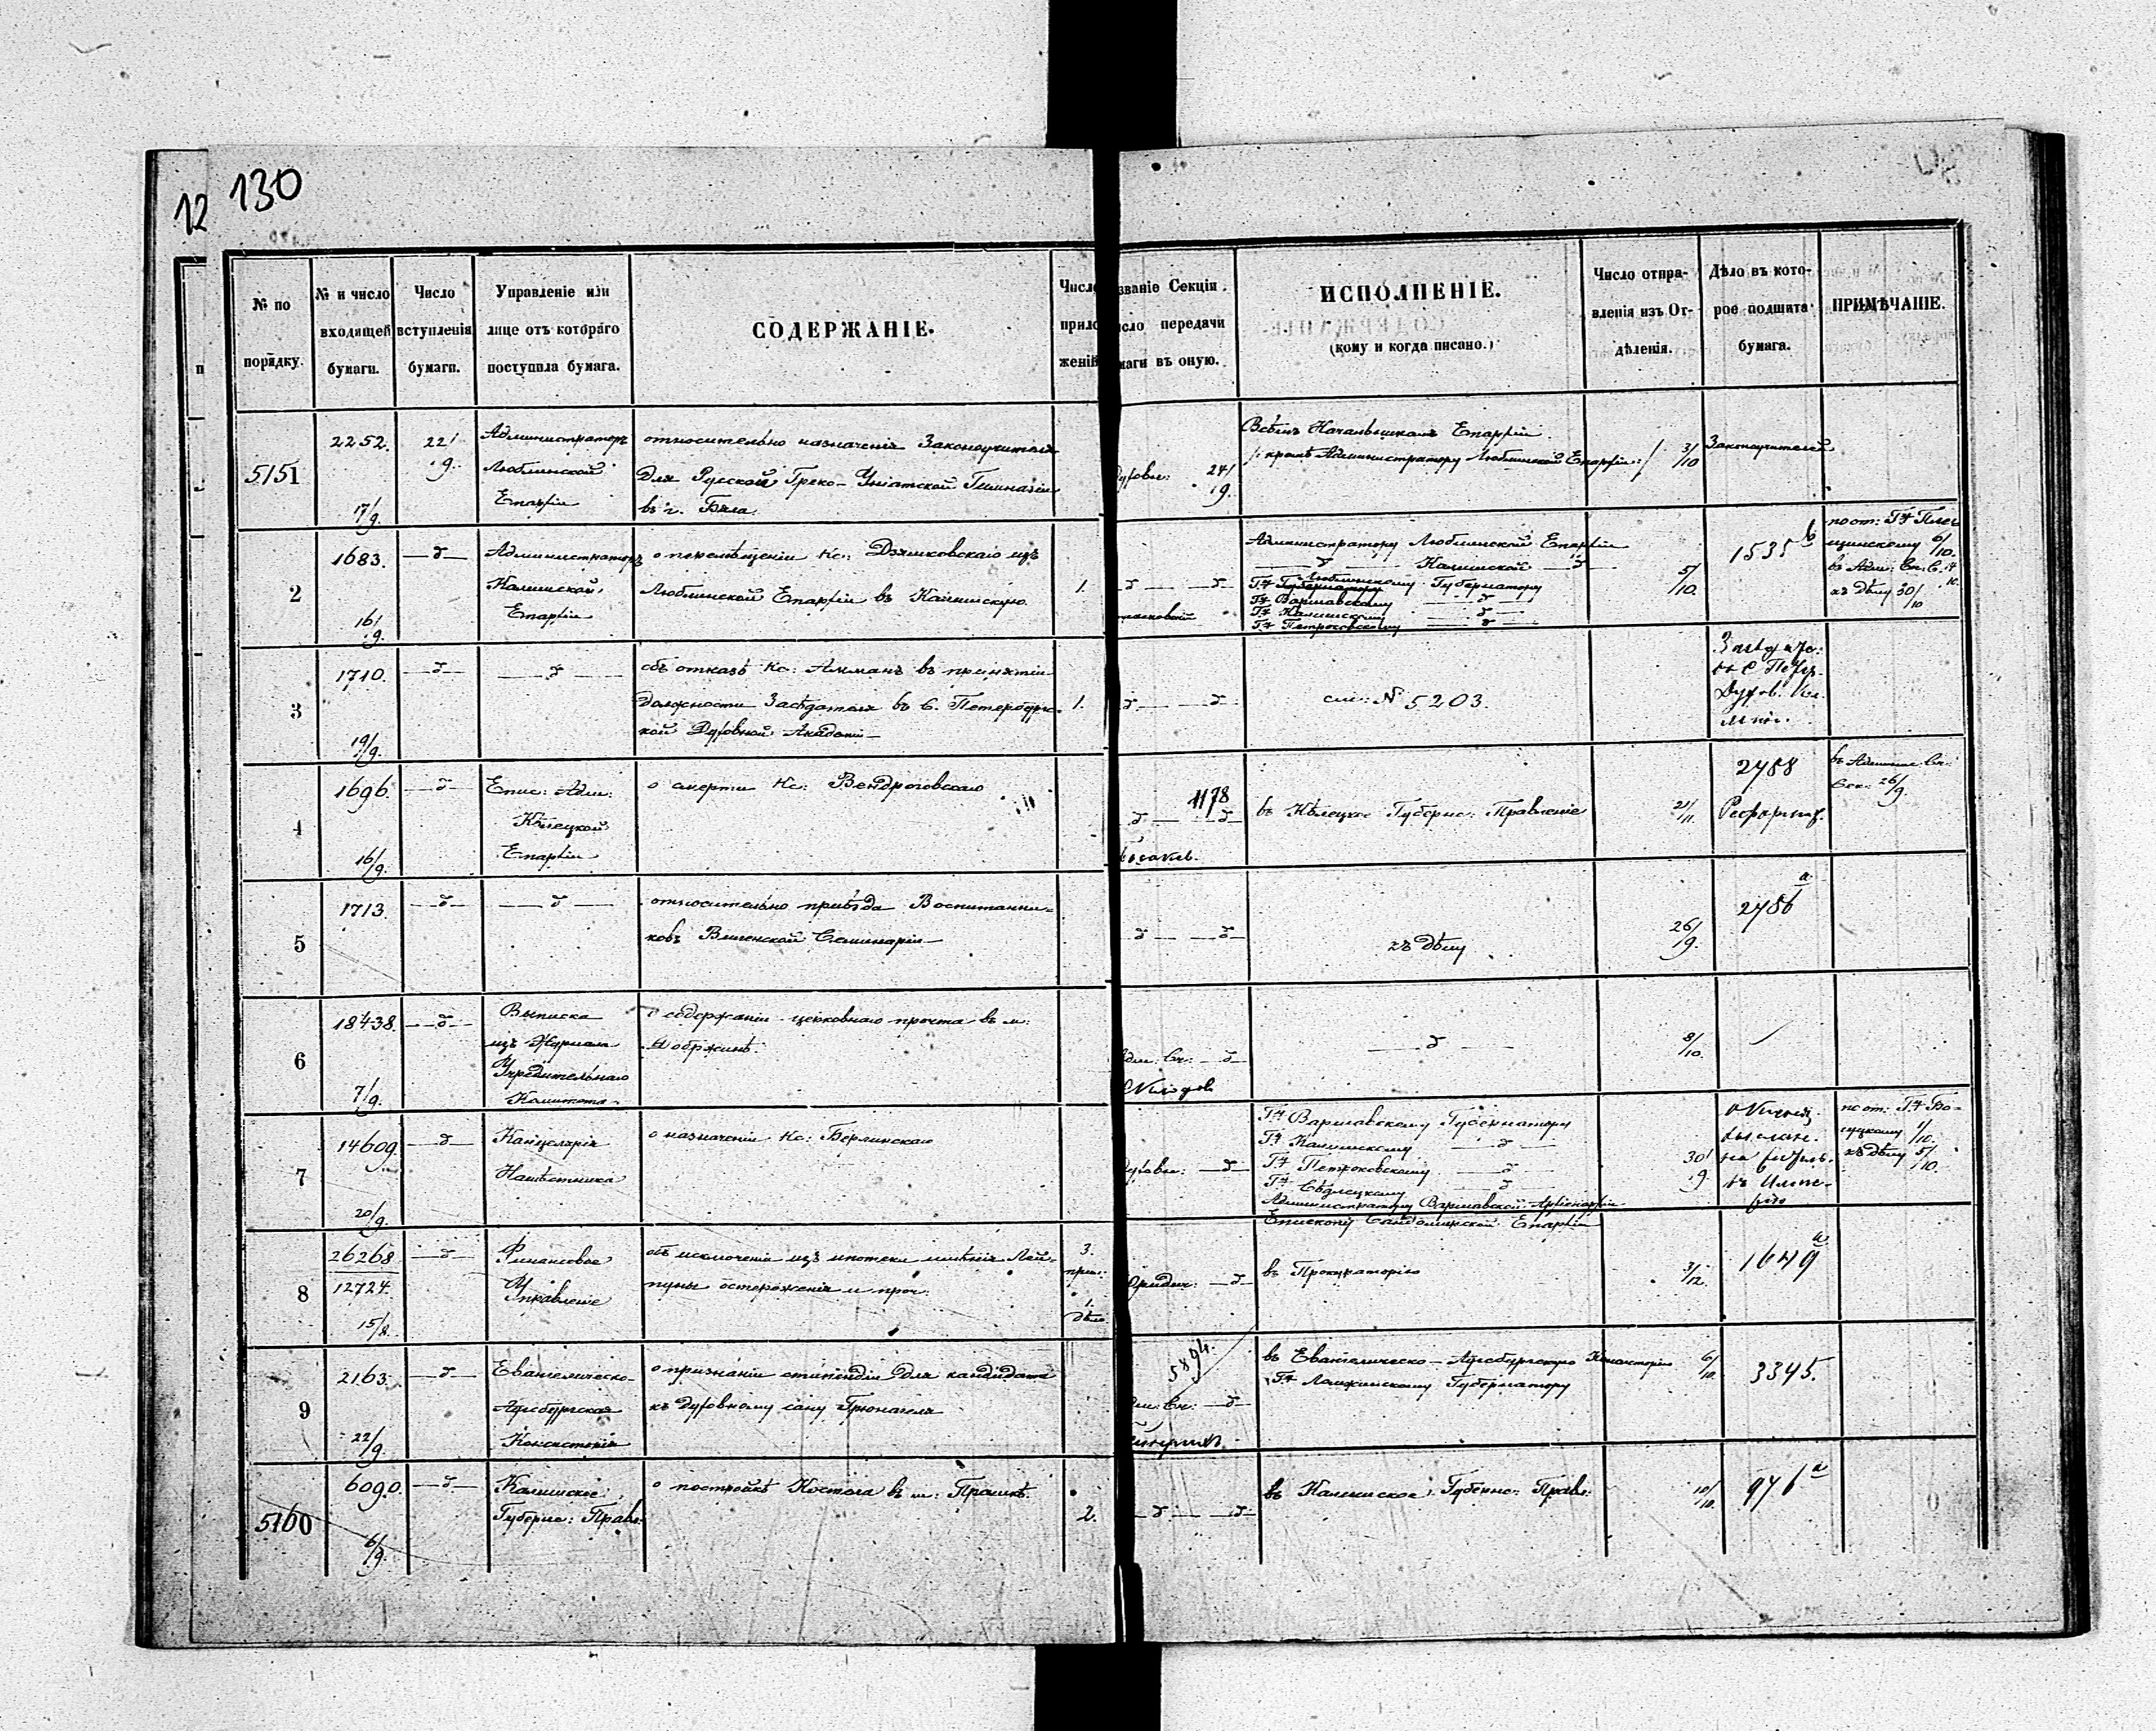 130
12
№ по порядку.
№ и число входящей бумаги.
Число вступленія бумаги.
Управленіе или лице отъ котораго поступила бумага.
СОДЕРЖАНІЕ.
Число прило женій
званіе Секціи
исло передачи
маги въ оную.
ИСПОЛНЕНІЕ.
(кому и когда писано.)
Число отпра-
вленія изъ От-
дѣленія.
Дѣло въ кото-
рое подшита
бумага.
ПРИМѢЧАНІЕ.
5151
2252.
17/9.
22/9.
Администраторъ
Люблинской
Епархіи
относительно назначенія Законоучителя
для Русской Греко-Уніатской Гимназіи
въ г. Бяла.
духовн: 24/9.
Всѣмъ Начальникамъ Епархіи
/: кромѣ Администратору Люблинской Епархіи :/
3/10
Законоучителей
2
1683.
16/9.
—д—
Администраторъ
Калишской
Епархіи
о перемѣщеніи Кс: Дзяшковскаго изъ
Люблинской Епархіи въ Калишскую
1.
д — — д
Администратору Люблинской Епархіи
— д — Калишской — д —
Гну Люблинскому Губернатору
Гну Варшавскому — д —
Гну Калишскому — д —
Гну Петроковскому — д —
5/10.
1535 b
по от: Гну
щинскому 6/10.
въ Адм: 
къ дѣлу 30/10
3
1710.
19/9.
—д—
— д —
объ отказѣ Кс: Акманъ въ принятіи
должности Засѣдателя въ С. Петербургс-
кой Духовной Академіи —
1.
д — — д
см: № 5203.
Духов.
4
1696.
16/9.
—д—
Епис: Адм:
Кѣлецкой
Епархіи
о смерти Кс: Вендроговскаго
1178
д — — д
въ Кѣлецкое Губернс: Правленіе
21/11.
2488
въ Админ:
26/9.
5
1713.
—д—
— д —
относительно пріѣзда Воспитанни-
ковъ Виленской Семинаріи —
— д — — д —
къ дѣлу
26/9.
2486 a
6
18438.
7/9.
—д—
Выписка
изъ Журнала
Учредительнаго
Комитета
о содержаніи церковнаго причта въ м:
Кобржинѣ.
— д —
8/10.
7
14609.
20/9.
—д—
Канцелярія
Намѣстника
о назначеніи Кс: Берлинскаго
духовн: — д —
Гну Варшавскому Губернатору
Гну Калишскому — д —
Гну Петроковскому — д —
Гну Сѣдлецкому — д —
Администратору Варшавской Архіепархіи
Епископу Сандомирской Епархіи
30/9.
въ Импе-
рію
по от: Гну
1/10.
къ дѣлу 5/10.
8
26268
12724.
15/8.
—д—
Финансовое
Управленіе
объ исключеніи изъ ипотеки имѣнія Лей-
пуны остереженія и проч.
3.
прил:
1.
дѣло
Юридич: — д —
въ Прокураторію
3/12.
1649 a
9
2163.
22/9.
—д—
Евангелическо-
Аугсбургская
Консисторія
о признаніи стипендіи для кандидата
къ духовному сану Грюнагеля
5894.
— д —
въ Евангелическо-Аугсбургскую Консисторію
Гну Ломжинскому Губернатору
6/10.
3345.
5160
6090.
6/9.
—д—
Калишское
Губернс: Правл:
о постройкѣ Костела въ м: Прашкѣ.
2.
— д — — д —
въ Калишское Губернс: Правл:
10/10.
946 a